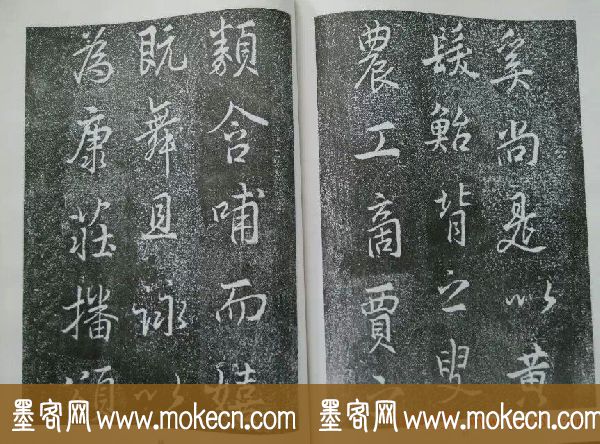 奚尚是以黄
髮鲐背之叟
農工商賈之
類含哺而嬉
既舞且詠以
為康莊播頌
墨客网 www.mokecn.com
墨客网 www.mokecn.com